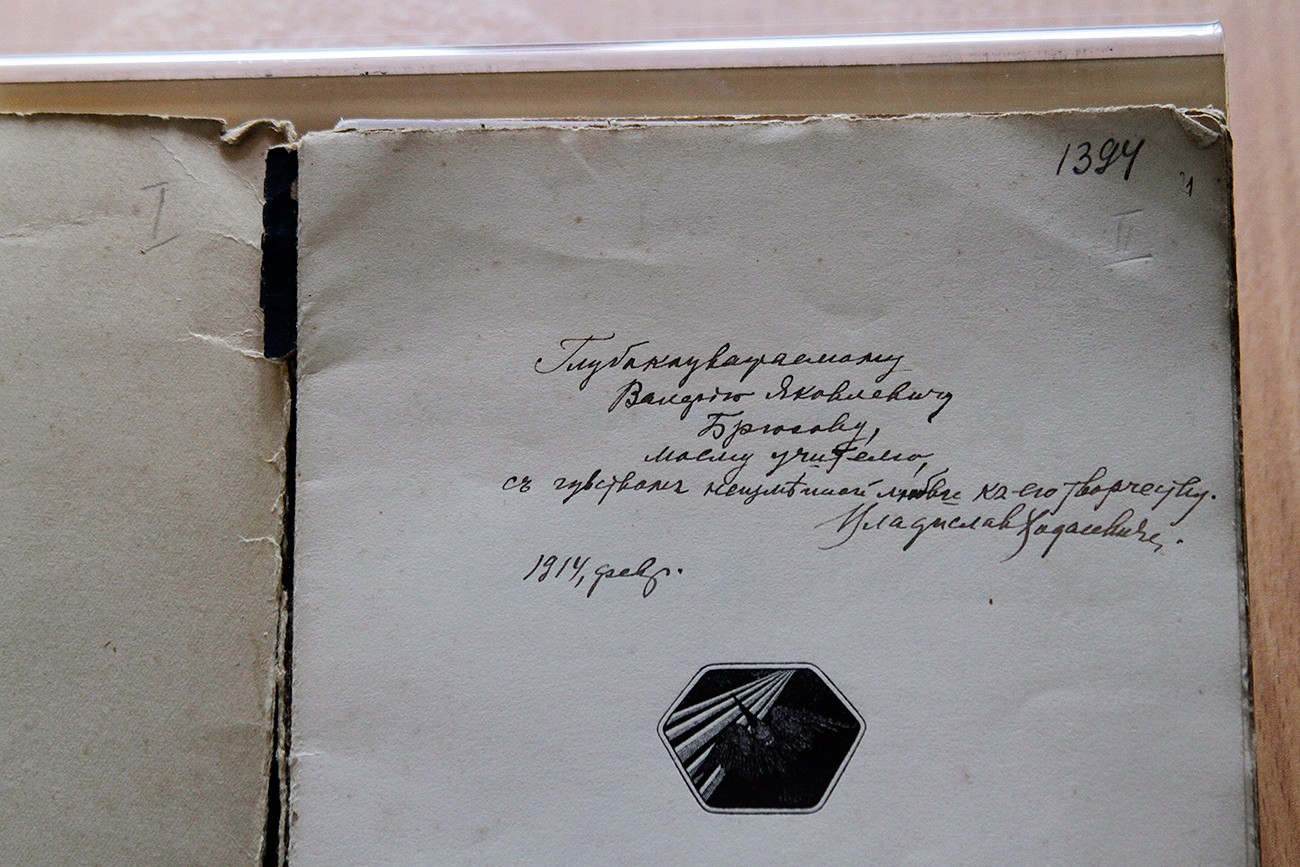 I
1394
II
Глубокоуважаемому
Валерію Яковлевичу
Брюсову,
моему учителю,
съ чувствомъ неизмѣнной любви къ его творчеству.
Владиславъ Ходасевичъ.
1914, февр.